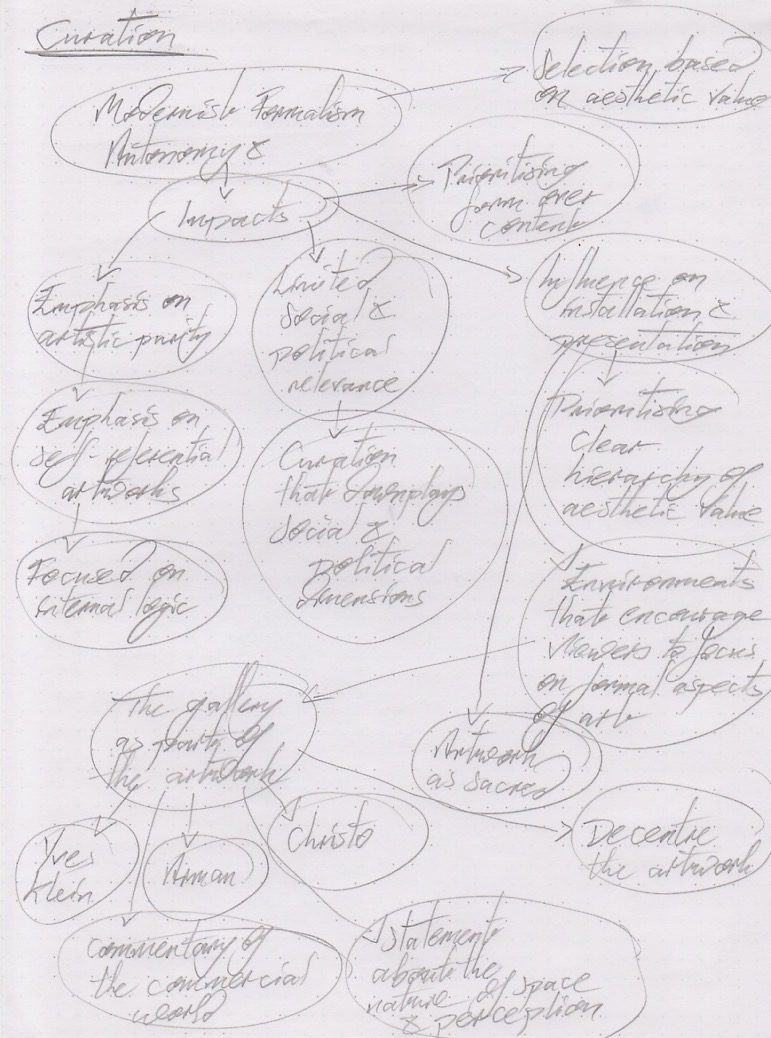 Curation
Selection based
on aesthetic value
Modernist Formalism
Autonomy &
Prioritising
form over
content
Impacts
Emphasis on
artistic purity
Limited
social &
political
relevance
Influence on
installation &
presentation
Emphasis on
self-referential
artworks
Curation
that downplays
social &
political
dimensions
Prioritising
clear
hierarchy of
aesthetic value
Focused on
internal logic
Environments
that encourage
viewers to focus
on formal aspects
of art
The gallery
as part of
the artwork
Artwork
as sacred
Yves
Klein
Arman
Christo
Decentre
the artwork
Commentary of
the commercial
world
Statement
about the
nature of space
& perception